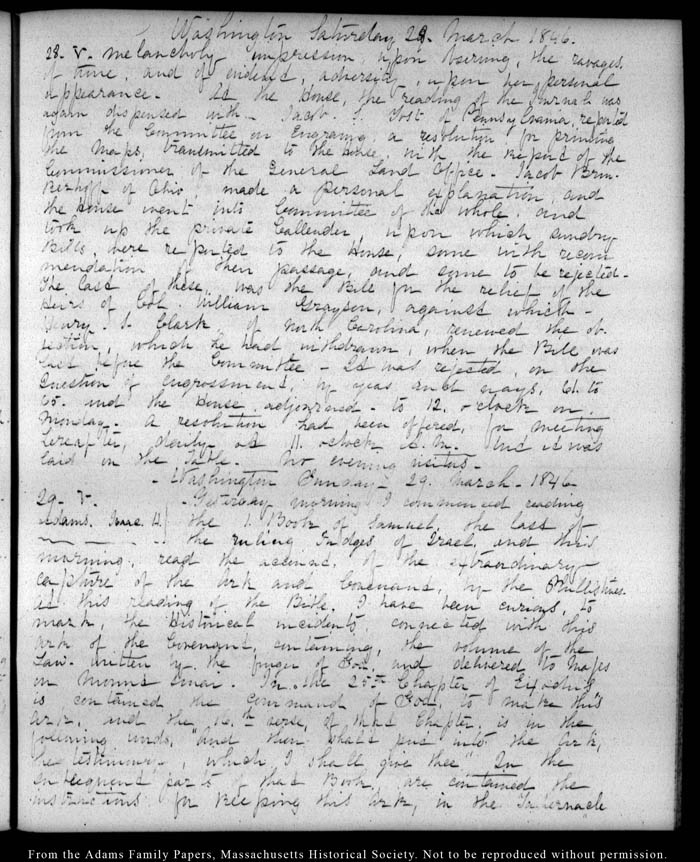 Washington Saturday 28. March 1846.
28. V. melancholy impression upon observing, the ravages
of time, and of evident, adversity, upon her personal
appearance. At the House, the reading of the Journal was
again dispensed with. Jacob S. Yost of Pennsylvania, reported
from the Committee on Engraving, a resolution for printing
the Maps, transmitted to the House, with the Report of the
Commissioner of the General Land Office. Jacob Brin-
kerhoff of Ohio made a personal explanation, and
the House went into Committee of the whole, and
took up the private Callender, upon which sundry
Bills, were reported to the House, some with recom
mendation of their passage, and some to be rejected.
The last of these, was the Bill for the relief of the
Heirs of Col. William Grayson, against which
Henry S. Clark of North Carolina, renewed the ob-
jection, which he had withdrawn, when the Bill was
last before the Committee. It was rejected, on the
Question of engrossment, by yeas and nays, 61. to
65. and the House adjourned to 12. o-clock on
Monday. A resolution had been offered, for meeting
hereafter, daily at 11. o-clock A.M. but it was
laid on the Table. No evening visitors.
Washington Sunday 29. March. 1846
29. V. Yesterday morning I commenced reading
Adams. Isaac H. the 1. Book of Samuel, the last of
the ruling Judges of Israel, and this
morning, read the account, of the extraordinary
capture of the Ark and Covenant, by the Philistines.
At this reading of the Bible, I have been curious, to
mark, the Historical incidents, connected with this
Ark of the Covenant, containing, the volume of the
Law written by the finger of God, and delivered to Moses
on Mount Sinai. In the 25th Chapter of Exodus
is contained the command of God, to make this
Ark, and the 16.th verse, of that Chapter, is in the
following words, "And thou shalt put into the Ark,
the testimony, which I shall give thee". In the
subsequent parts of that Book, are contained the
instructions for keeping this Ark, in the Tabernacle
From the Adams Family Papers, Massachusetts Historical Society. Not to be reproduced without permission.